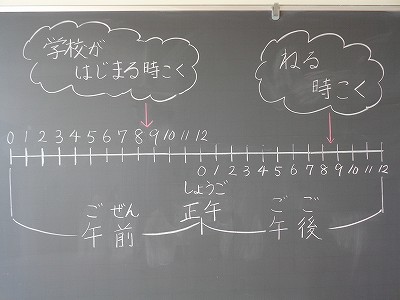 学校が
はじまる時こく
ねる
時こく
0 1 2 3 4 5 6 7 8 9 10 11 12
0 1 2 3 4 5 6 7 8 9 10 11 12
しょうご
正午
ごぜん
午前
ごご
午後